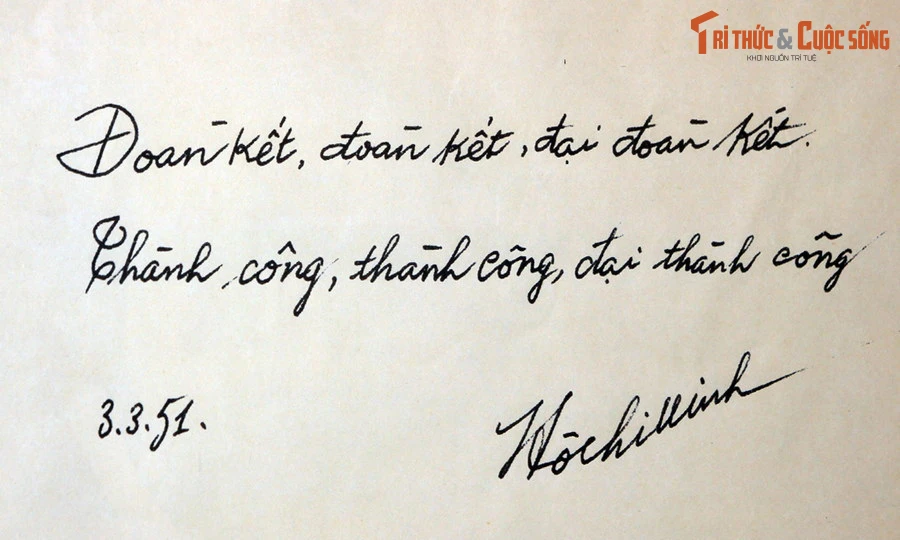 TRI THỨC & CUỘC SỐNG
KHƠI NGUỒN TRI TUỆ
Đoàn kết, đoàn kết, đại đoàn kết.
Thành công, thành công, đại thành công
3.3.51.
Hồ chí Minh